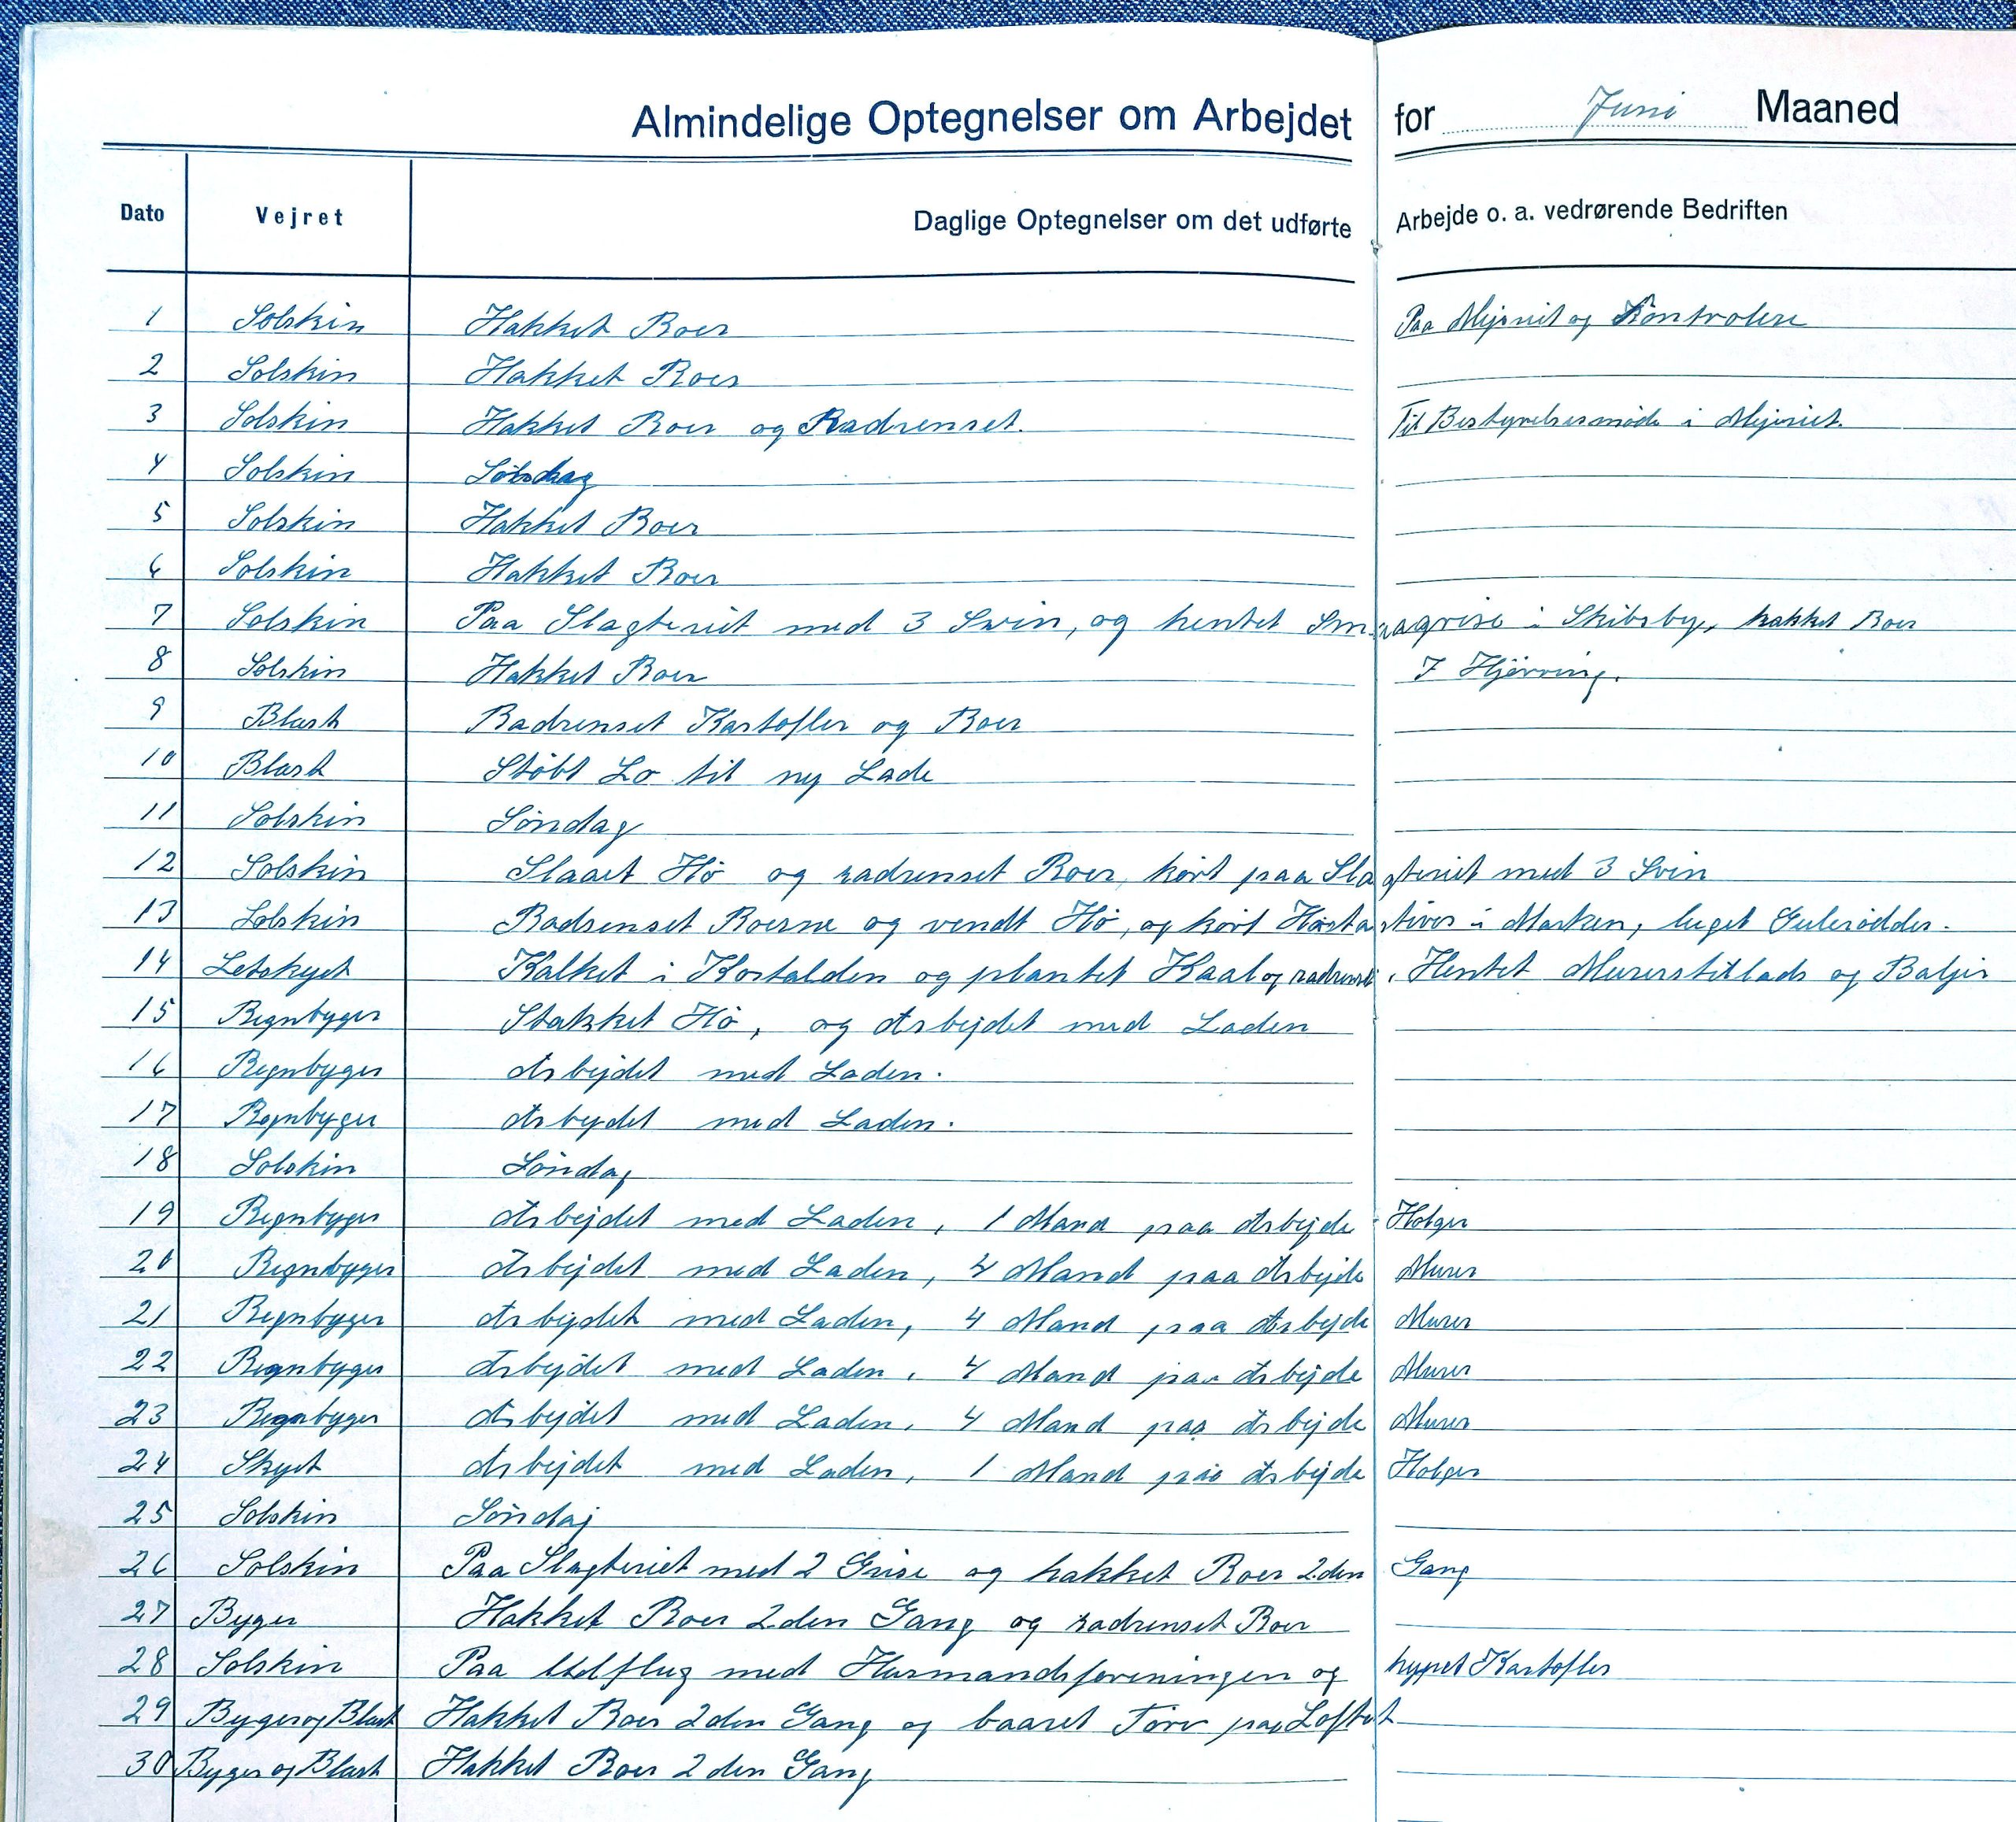 Almindelige Optegnelser om Arbejdet for Juni Maaned
Dato Vejret Daglige Optegnelser om det udførte Arbejde o. a. vedrørende Bedriften
1 Solskin Hakket Roer Paa Mejeriet og Kontrolere
2 Solskin Hakket Roer
3 Solskin Hakket Roer og Radrenset. Til Bestyrelsesmøde i Mejeriet.
4 Solskin Söndag
5 Solskin Hakket Roer
6 Solskin Hakket Roer
7 Solskin Paa Slagteriet med 3 Svin, og hentet Smaagrise i Skibsby, hakket Roer
8 Solskin Hakket Roer I Hjörring.
9 Blæst Radrenset Kartofler og Roer
10 Blæst Støbt Lo til ny Lade
11 Solskin Söndag
12 Solskin Slaaet Hö og radrenset Roer, kört paa Slagteriet med 3 Svin
13 Solskin Radrenset Roerne og vendt Hö, og kört Höstativer i Marken, luget Gulerødder.
14 Letskyet Kalket i Kostalden og plantet Kaal og radrenset. Hentet Murerstillads og Baljer
15 Regnbyger Stakket Hö, og Arbejdet med Laden
16 Regnbyger Arbejdet med Laden.
17 Regnbyger Arbejdet med Laden.
18 Solskin Söndag
19 Regnbyger Arbejdet med Laden, 1 Mand paa Arbejde Holger
20 Regnbyger Arbejdet med Laden, 4 Mand paa Arbejde Murer
21 Regnbyger Arbejdet med Laden, 4 Mand paa Arbejde Murer
22 Regnbyger Arbejdet med Laden, 4 Mand paa Arbejde Murer
23 Regnbyger Arbejdet med Laden, 4 Mand paa Arbejde Murer
24 Skyet Arbejdet med Laden, 1 Mand paa Arbejde Holger
25 Solskin Söndag
26 Solskin Paa Slagteriet med 2 Grise og hakket Roer 2den Gang
27 Byger Hakket Roer 2den Gang og radrenset Roer
28 Solskin Paa Udflug med Husmandsforeningen og hyppet Kartofler
29 Byger og Blæst Hakket Roer 2den Gang og baaret Törv paa Loftet
30 Byger og Blæst Hakket Roer 2den Gang